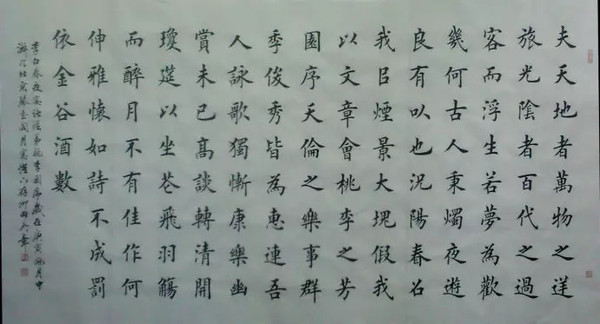 夫天地者萬物之逆
旅光陰者百代之過
客而浮生若夢為歡
幾何古人秉燭夜遊
良有㕥也況陽春召
我㠯煙景大塊假我
以文章會桃李之芳
園序天倫之樂事群
季俊秀皆為惠連吾
人詠歌獨慚康樂幽
賞未已高談轉清開
瓊筵以坐花飛羽觴
而醉月不有佳作何
伸雅懷如詩不成罰
依金谷酒數
李白春夜宴諸從弟桃李園序歲在庚寅